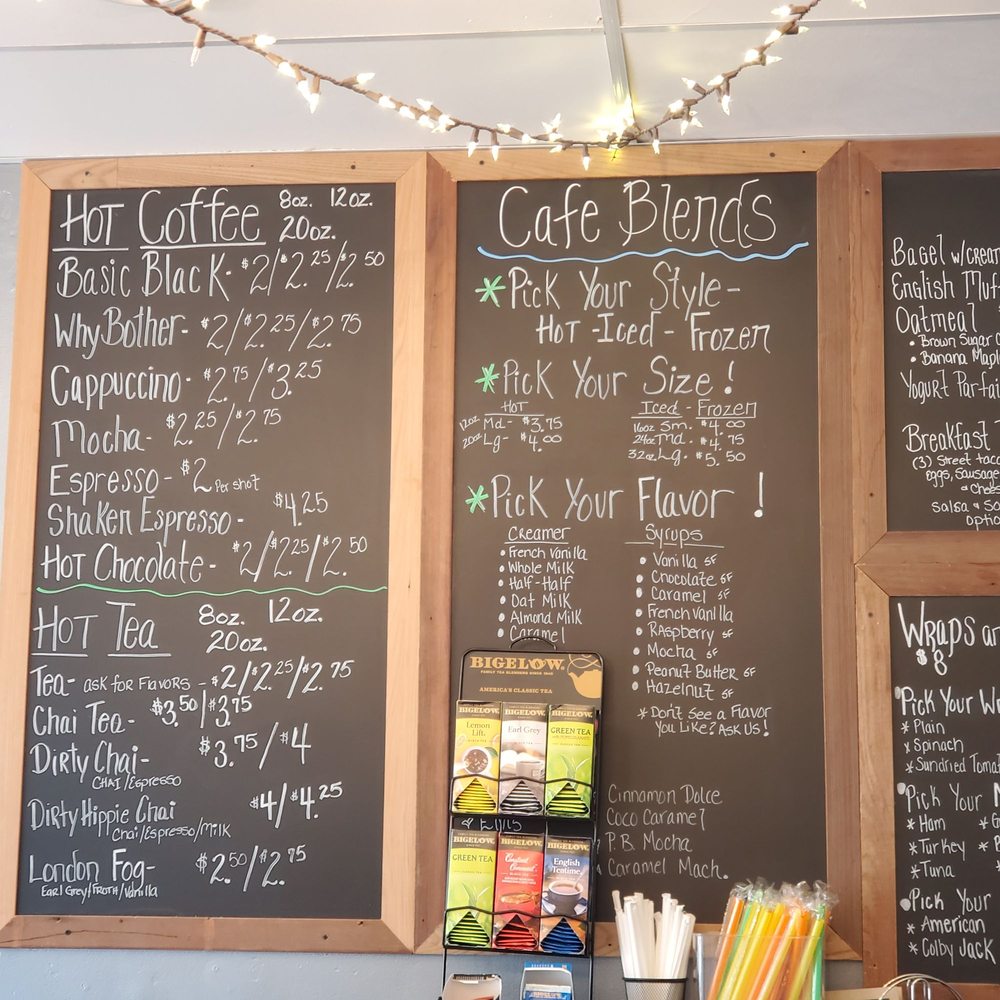 Hot Coffee 8oz. 12oz.
20oz.
Basic Black- $2/$2.25/$2.50
Why Bother- $2/$2.25/$2.75
Cappuccino- $2.75/$3.25
Mocha- $2.25/$2.75
Espresso- $2 Per shot
Shaken Espresso- $4.25
Hot Chocolate- $2/$2.25/$2.50
Hot Tea 8oz. 12oz.
20oz.
Tea- ask for Flavors - $2/$2.25/$2.75
Chai Tea- $3.50/$3.75
Dirty Chai- $3.75/$4
CHAI/Espresso
Dirty Hippie Chai $4/$4.25
Chai/Espresso/Milk
London Fog- $2.50/$2.75
Earl Grey/Froth/Vanilla
Cafe Blends
*Pick Your Style-
Hot - Iced - Frozen
*Pick Your Size!
Hot
12oz Md- $3.75
20oz Lg- $4.00
Iced - Frozen
16oz Sm. $4.00
24oz Md. $4.75
32oz Lg. $5.50
*Pick Your Flavor!
Creamer
• French Vanilla
• Whole Milk
• Half-Half
• Oat Milk
• Almond Milk
• Caramel
Syrups
• Vanilla SF
• Chocolate SF
• Caramel SF
• French Vanilla
• Raspberry SF
• Mocha SF
• Peanut Butter SF
• Hazelnut SF
* Don't See a Flavor
You Like? Ask Us!
Cinnamon Dolce
Coco Caramel
P.B. Mocha
Caramel Mach.
BIGELOW.
FAMILY TEA BLENDERS SINCE 1945
AMERICA'S CLASSIC TEA
BIGELOW
Lemon
Lift
BIGELOW
Earl Grey
BIGELOW
GREEN TEA
BIGELOW
GREEN TEA
BIGELOW
Constant
Comment
BIGELOW
English
Teatime
BIGELOW
Bagel w/Cream
English Muf
Oatmeal
• Brown Sugar
• Banana Maple
Yogurt Parfai
Breakfast
(3) Street Taco
Eggs, Sausage
& Chees
Salsa & So
Optio
Wraps an
$8
• Pick Your W
* Plain
* Spinach
* Sundried Tomat
• Pick Your
* Ham
* Turkey
* Tuna
• Pick Your
* American
* Colby Jack